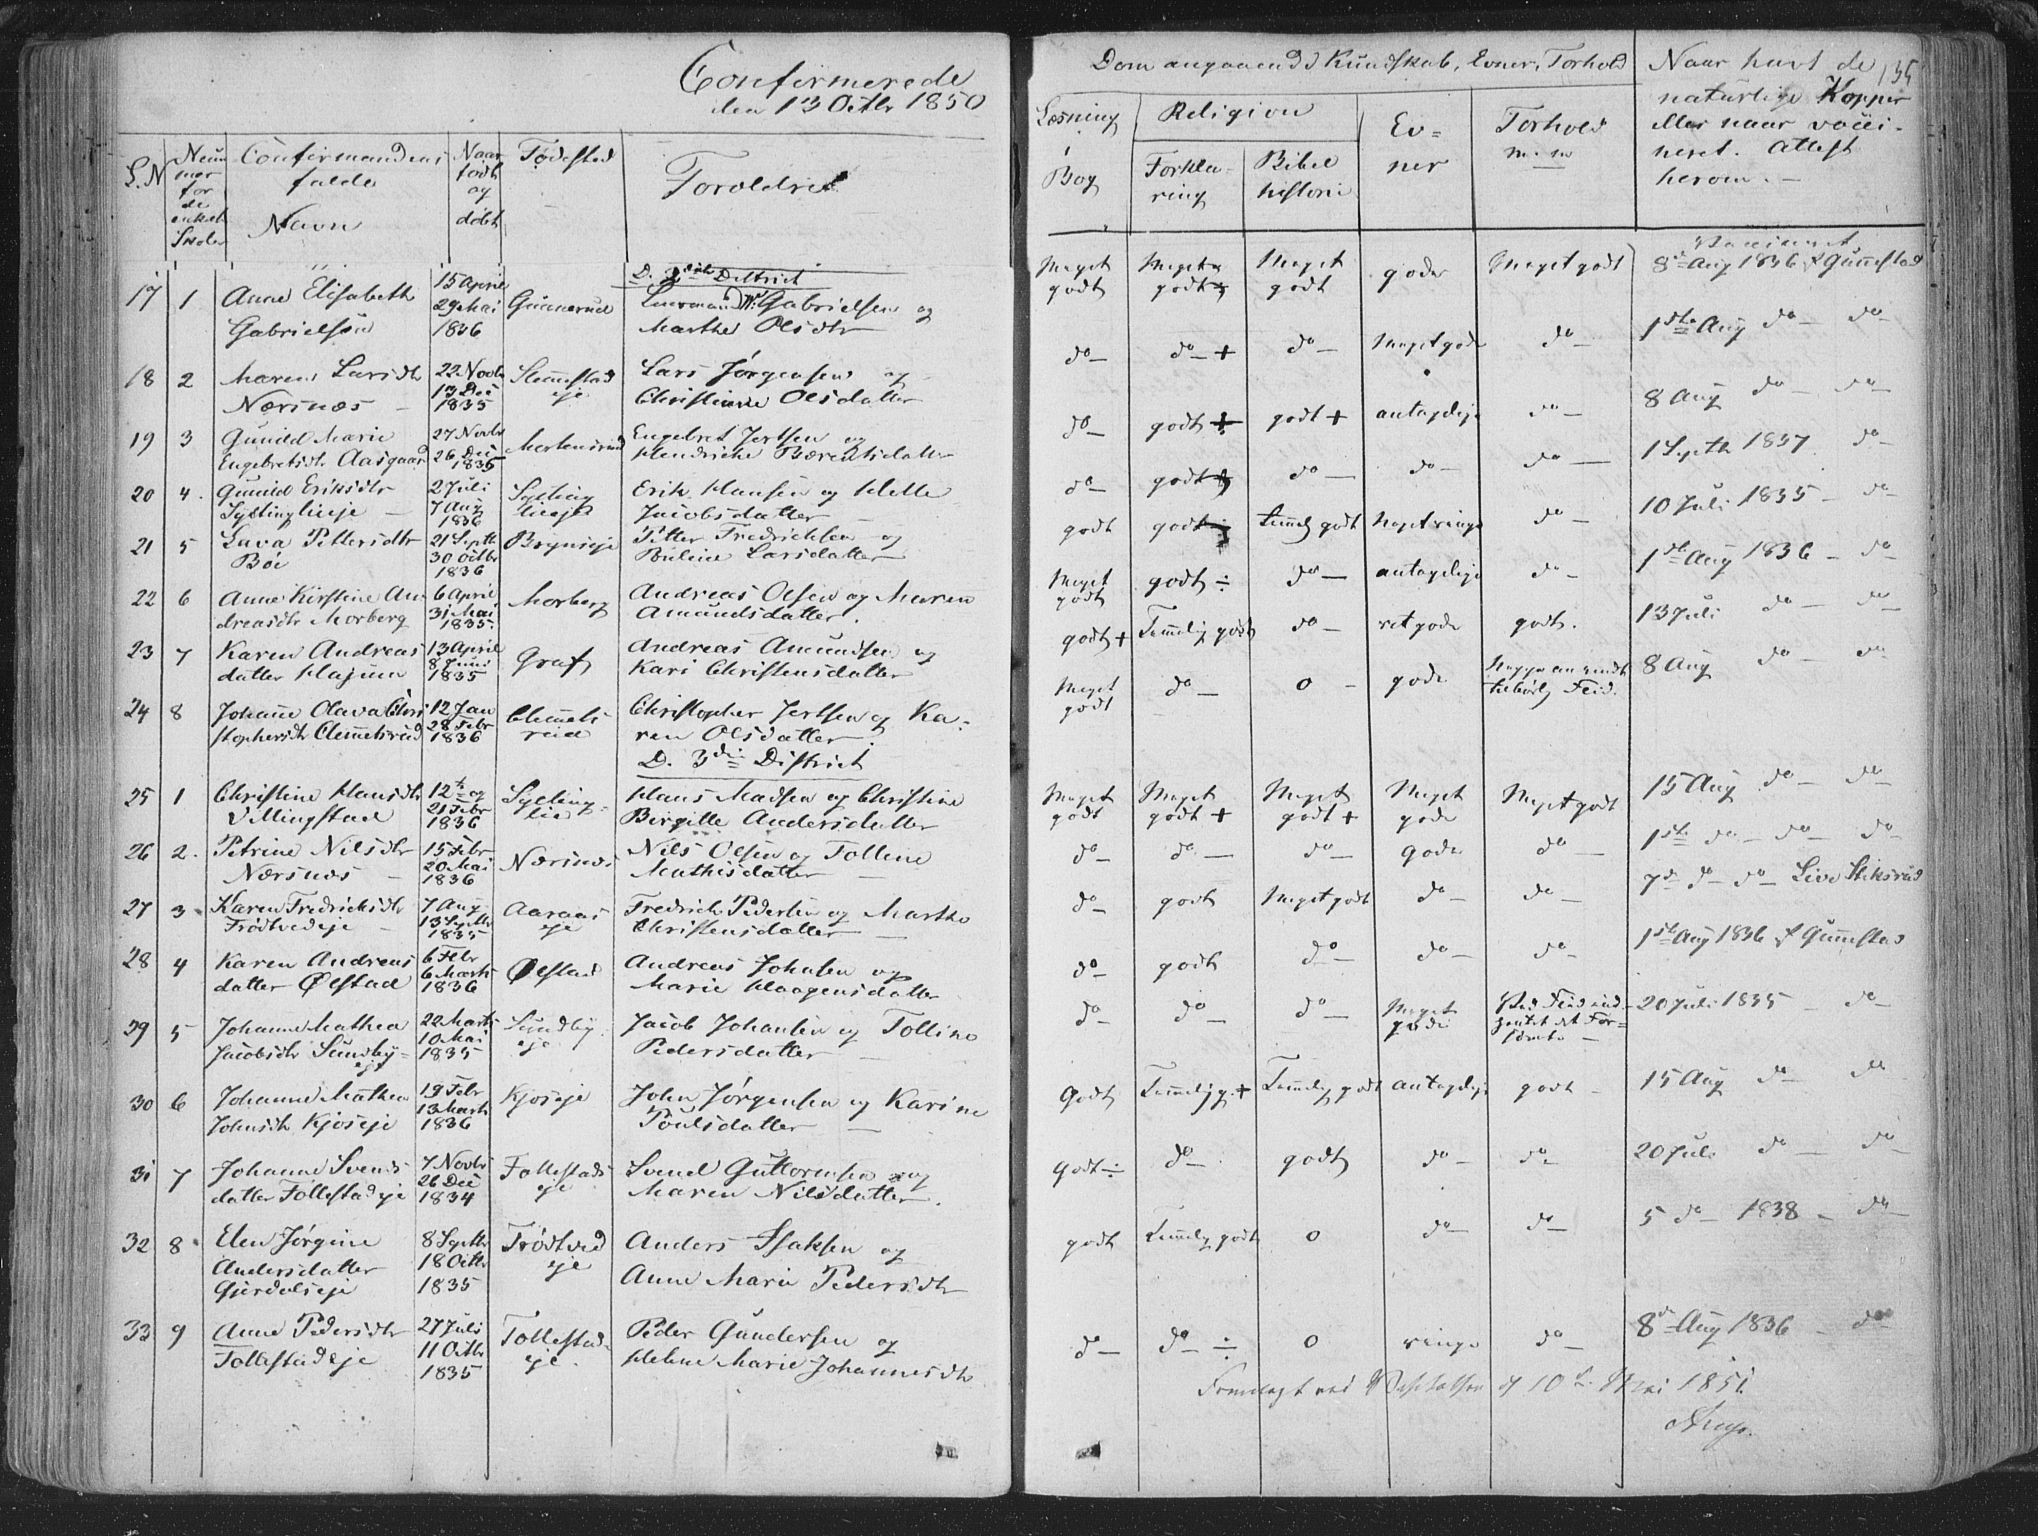 Confirmerede
den 13 Octbr 1850
L.N
Num
mer
for
de
enkelt
Skoler
Confirmandens
fulde
Navn
Naar
født
og
døbt
Fødested
Forældre
D. 2det District
17 1 Anne Elisabeth
Gabrielsen
15 April
29 Mai
1836
Gunnerud
Gabrielsen og
Marthe Olsdtr
18 2 Maren Larsdtr
Nærsnæs
22 Novbr
13 Dec
1835
Slemmestad
eje
Lars Jørgensen og
Christiane Olsdatter
19 3 Gunild Marie
Engebretsdtr Aasgaard
27 Novbr
26 Dec
1835
Mortensrud
Engebret Jertsen og
Hendricke Bærentsdatter
20 4. Gunild Eriksdtr
Syltinglieeje
2 Juli
7 Aug
1836
Sylting
lieeje
Erik Hansen og Helle
Jacobsdatter
21 5 Lava Pettersdtr
Bøe
21 Septbr
30 Octbr
1836
Petter Fredricksen og
Pauline Larsdatter
22 6 Anne Kirstine An
dreasdtr Morberg
6 April
31 Mai
1835.
Morberg
Andreas Olsen og Maren
Amundsdatter.
23 7 Karen Andreas
datter Hajum
13 April
8 Juni
1835
Graf
Andreas Amundsen og
Kari Christensdatter
24 8 Johanne Olava Chri
stophersdtr Clemmetsrud
12 Jan
28 Febr
1836
Clemmets
rud
Christopher Jertsen og Ka-
ren Olsdatter.
D. 3die District
25 1 Christine Hansdtr
Villingstad
12te og
21 Febr
1836
Sylting-
lie
Hans Madsen og Christine
Birgitte Andersdatter
26 2. Petrine Nilsdtr
Nærsnæs
15 Febr
20 Mai
1836
Nærsnæs
Nils Olsen og Tolline
Mathisdatter
27 3 Karen Fredricksdtr
Frødtvedeje
7 Aug
13 Septbr
1835
Aaraas
eje
Fredrich Pedersen og Marthe
Christensdatter
28 4 Karen Andreas
datter Ølstad
6 Febr
6 Marts
1836
Ølstad
Andreas Johnsen og
Marie Haagensdatter
29 5 Johanne Mathea
Jacobsdtr Sundby-
eje
22 Marts
10 Mai
1835
Sundby
eje
Jacob Johansen og Tolline
Pedersdatter
30 6 Johanne Mathea
Johnsdtr Kjøseje
19 Febr
13 Marts
1836
Kjøseje
John Jørgensen og Karine
Poulsdatter
31 7 Johanne Svends
datter Follestadeje
7 Novbr
26 Dec
1834
Follestads
eje
Svend Guttormsen og
Maren Nilsdatter.
32 8 Elen Jørgine
Andersdatter
Gjerdalseje
8 Septbr
18 Octbr
1835
Frødtved
eje
Anders Isaksen og
Anne Marie Pedersdtr
33 9 Anne Pedersdtr
Tollestadeje
27 Juli
11 Octbr
1835
Tollestad
eje.
Peder Gundersen og
Helene Marie Johannesdtr
Dom angaaende Kundskab, Evner, Forhold
Læsning
i
Bog
Religion
Forkla-
ring
Bibel
historie
Ev-
ner
Forhold
m.m
Naar havt de
naturlige Kopper
eller naar vacci-
neret. Attest
herom.
135
Meget
godt
Meget
godt
Meget
godt
gode
Meget godt
8de Aug 1836 Gunnestad
do do + do Meget gode do 1ste Aug do do
do godt + godt + antagelige do 8 Aug do do
do godt do do do 1 Septbr 1837 do
godt godt Temmelig godt Meget ringe do 10 Juli 1835 do
Meget
godt
godt ÷ do antagelige do 1ste Aug 1836 do
godt + Temmelig godt do ret gode godt. 13 Juli do do
Meget
godt
do 0 gode
8 Aug do do
Meget
godt
Meget
godt +
Meget
godt +
Meget
gode
Meget godt
15 Aug do do
do do do gode do 1ste do do do
do godt Meget godt do do 7de do do Live Stiksrud
do godt do do do 1ste Aug 1836 Gunnestad
do do do Meget
gode
20 Juli 1835 do
Godt Temmelig g. + Temmelig godt antagelige godt 15 Aug do do
Godt ÷ do godt do do 20 Juli do do
godt Temmelig godt 0 do do 5 do 1838 do
do do ÷ 0 ringe do 8de Aug 1836 do
Fremlagt ved Visitatsen d 10de Mai 1851